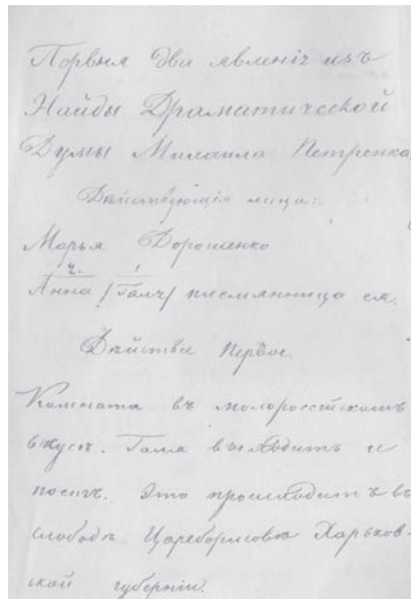 Первыя два явленія изъ
Найды Драматической
Думы Михаила Петренка
Дѣйствующія лица:
Марья Дорошенко
2. 1
Анна /Галя/ племянница ея.
Дѣйствіе первое.
Комната въ малороссійскомъ
вкусѣ. Галя выходитъ и
Это происходитъ въ
слободѣ Цареборисовѣ Харьков-
ской губерніи.